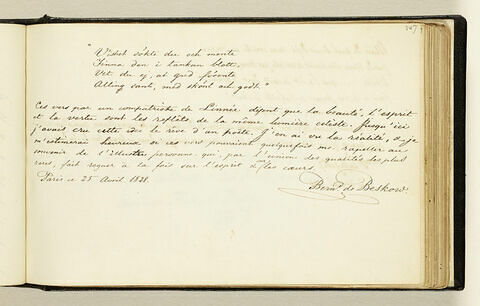 " Vishet sökte du och mente
Finna den i tankun blott.
Vet du ej, at Gud förente
Allting sant, med skönt och godt."
Ces vers par un compatriote de Linnée disent que la beauté, l'esprit
et la vertu sont les reflets de la même lumière céleste. Jusqu'ici
j'avais cru cette idée le rêve d'un poète. J'en ai vu la réalité, et je
m'estimerai heureux si ces vers pouvaient quelquefois me rapeller au
souvenir de l'Illustre personne qui, par l'union des qualités les plus
rares, fait regner à la fois sur l'esprit et les cœurs
Paris ce 25 Avril 1828.
Bern. de Beskow.